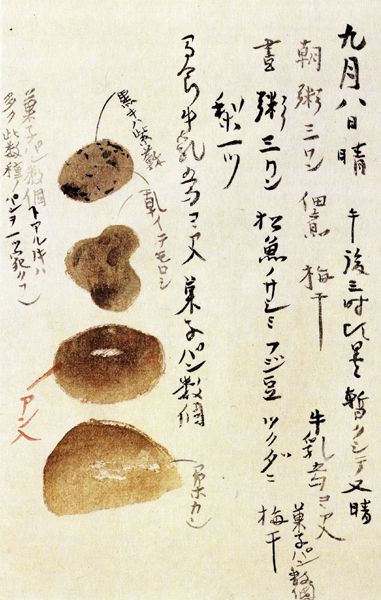 九月八日 晴 午後三時頃曇 暫クシテ又晴
朝 粥三ワン 佃煮 梅干
牛乳五勺ココア入
菓子パン数個
昼 粥三ワン 松魚ノサシミ フジ豆 ツクダニ 梅干
梨一ツ
間食 牛乳五勺ココア入 菓子パン数個
黒キハ紫蘇
乾イテモロシ
アン入
菓子パン数個トアルトキハ
多ク此数種ノパンヲ一ツ宛クフ